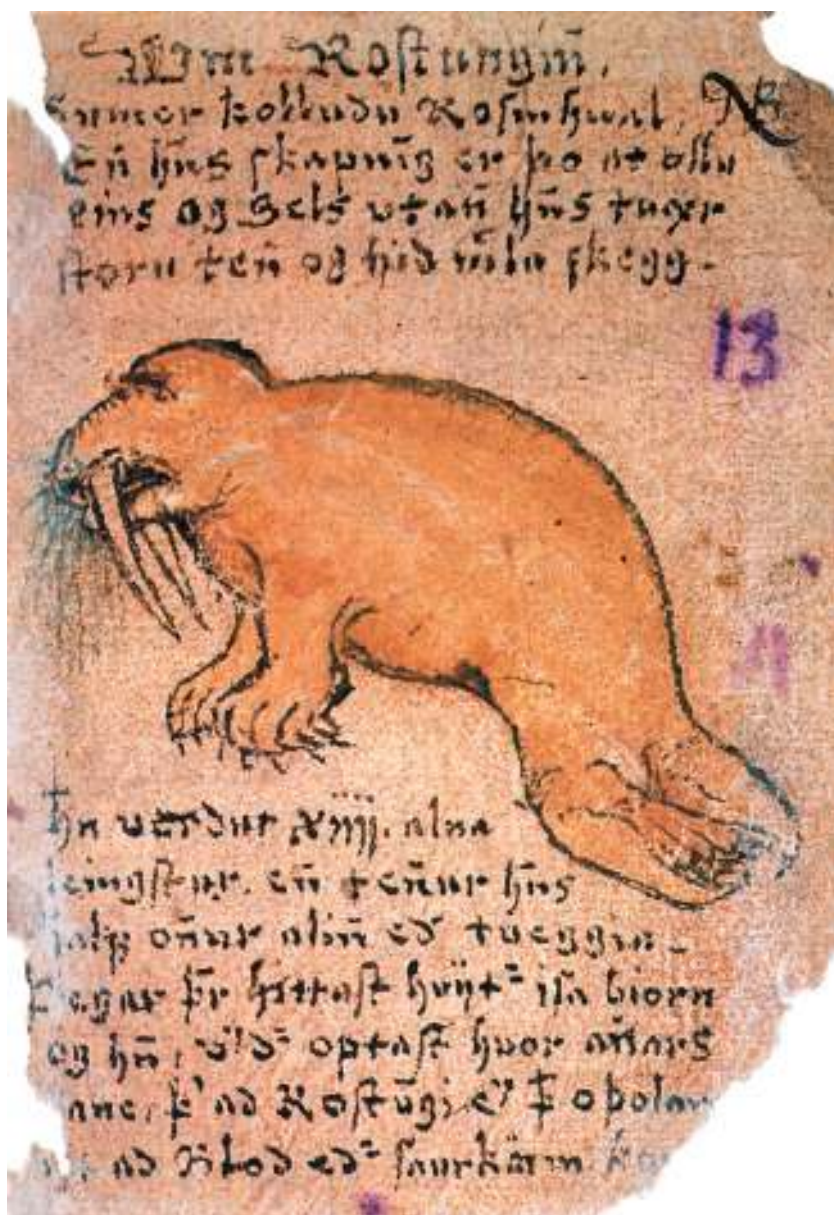 Um Rostungiñ.
Sumer kolludu Rosmhual, NB
En hñs skapnig er þo at ollu
eins og Sels vtañ hñs tuær
storu teñ og hid mikla skegg.
13
11
hñ verdur xiiij. alna
leingstur. eñ teñur hñs
halff oñur aliñ ed tueggia.
Þegar þr hittast huijt isa biorn
og hñ, optast huor añars
bane, ad Rostūgi oþolan
ad Blod ed